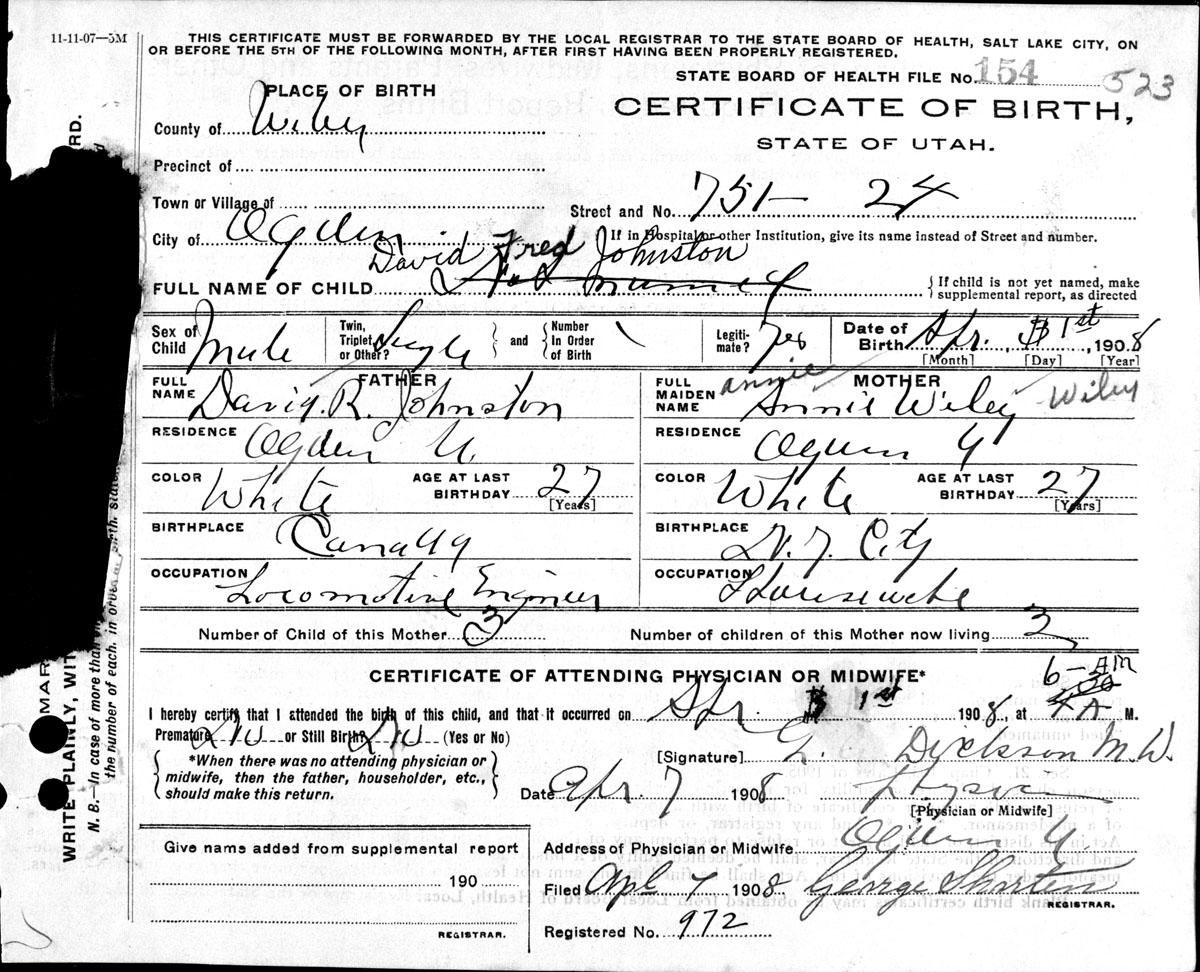 11-11-07—5M
THIS CERTIFICATE MUST BE FORWARDED BY THE LOCAL REGISTRAR TO THE STATE BOARD OF HEALTH, SALT LAKE CITY, ON
OR BEFORE THE 5TH OF THE FOLLOWING MONTH, AFTER FIRST HAVING BEEN PROPERLY REGISTERED.
STATE BOARD OF HEALTH FILE No. 154 523
PLACE OF BIRTH
CERTIFICATE OF BIRTH,
STATE OF UTAH.
County of
Precinct of
Town or Village of
Street and No. 751— 24
City of Ogden
If in Hospital or other Institution, give its name instead of Street and number.
David Fred Johnston
FULL NAME OF CHILD Not named
{If child is not yet named, make
supplemental report, as directed
Sex of Child Male
Twin, Triplet, or Other? Single
and
Number In Order of Birth
Legiti-mate? Yes
Date of Birth Apr. 1st, 1908
[Month] [Day] [Year]
FATHER
FULL NAME David. R. Johnston
RESIDENCE Ogden U.
COLOR White
AGE AT LAST BIRTHDAY 27
[Years]
BIRTHPLACE Canada
OCCUPATION Locomotive Engineer
MOTHER
annie Wiley
FULL MAIDEN NAME Annie Wiley
RESIDENCE Ogden U
COLOR White
AGE AT LAST BIRTHDAY 27
[Years]
BIRTHPLACE N. Y. City
OCCUPATION Housewife
Number of Child of this Mother 3
Number of children of this Mother now living 3
CERTIFICATE OF ATTENDING PHYSICIAN OR MIDWIFE*
6— AM
I hereby certify that I attended the birth of this child, and that it occurred on Apr. 1st 1908, at M.
Premature No or Still Birth? No (Yes or No)
*When there was no attending physician or
midwife, then the father, householder, etc.,
should make this return.
[Signature] Dickson M.D.
Date Apr. 7 1908
[Physician or Midwife]
Give name added from supplemental report
190
REGISTRAR.
Address of Physician or Midwife Ogden U
Filed Apr 7 1908 George Shorten
REGISTRAR.
Registered No. 972
WRITE PLAINLY, WIT
N. B.—In case of more than
the number of each, in order of birth, state